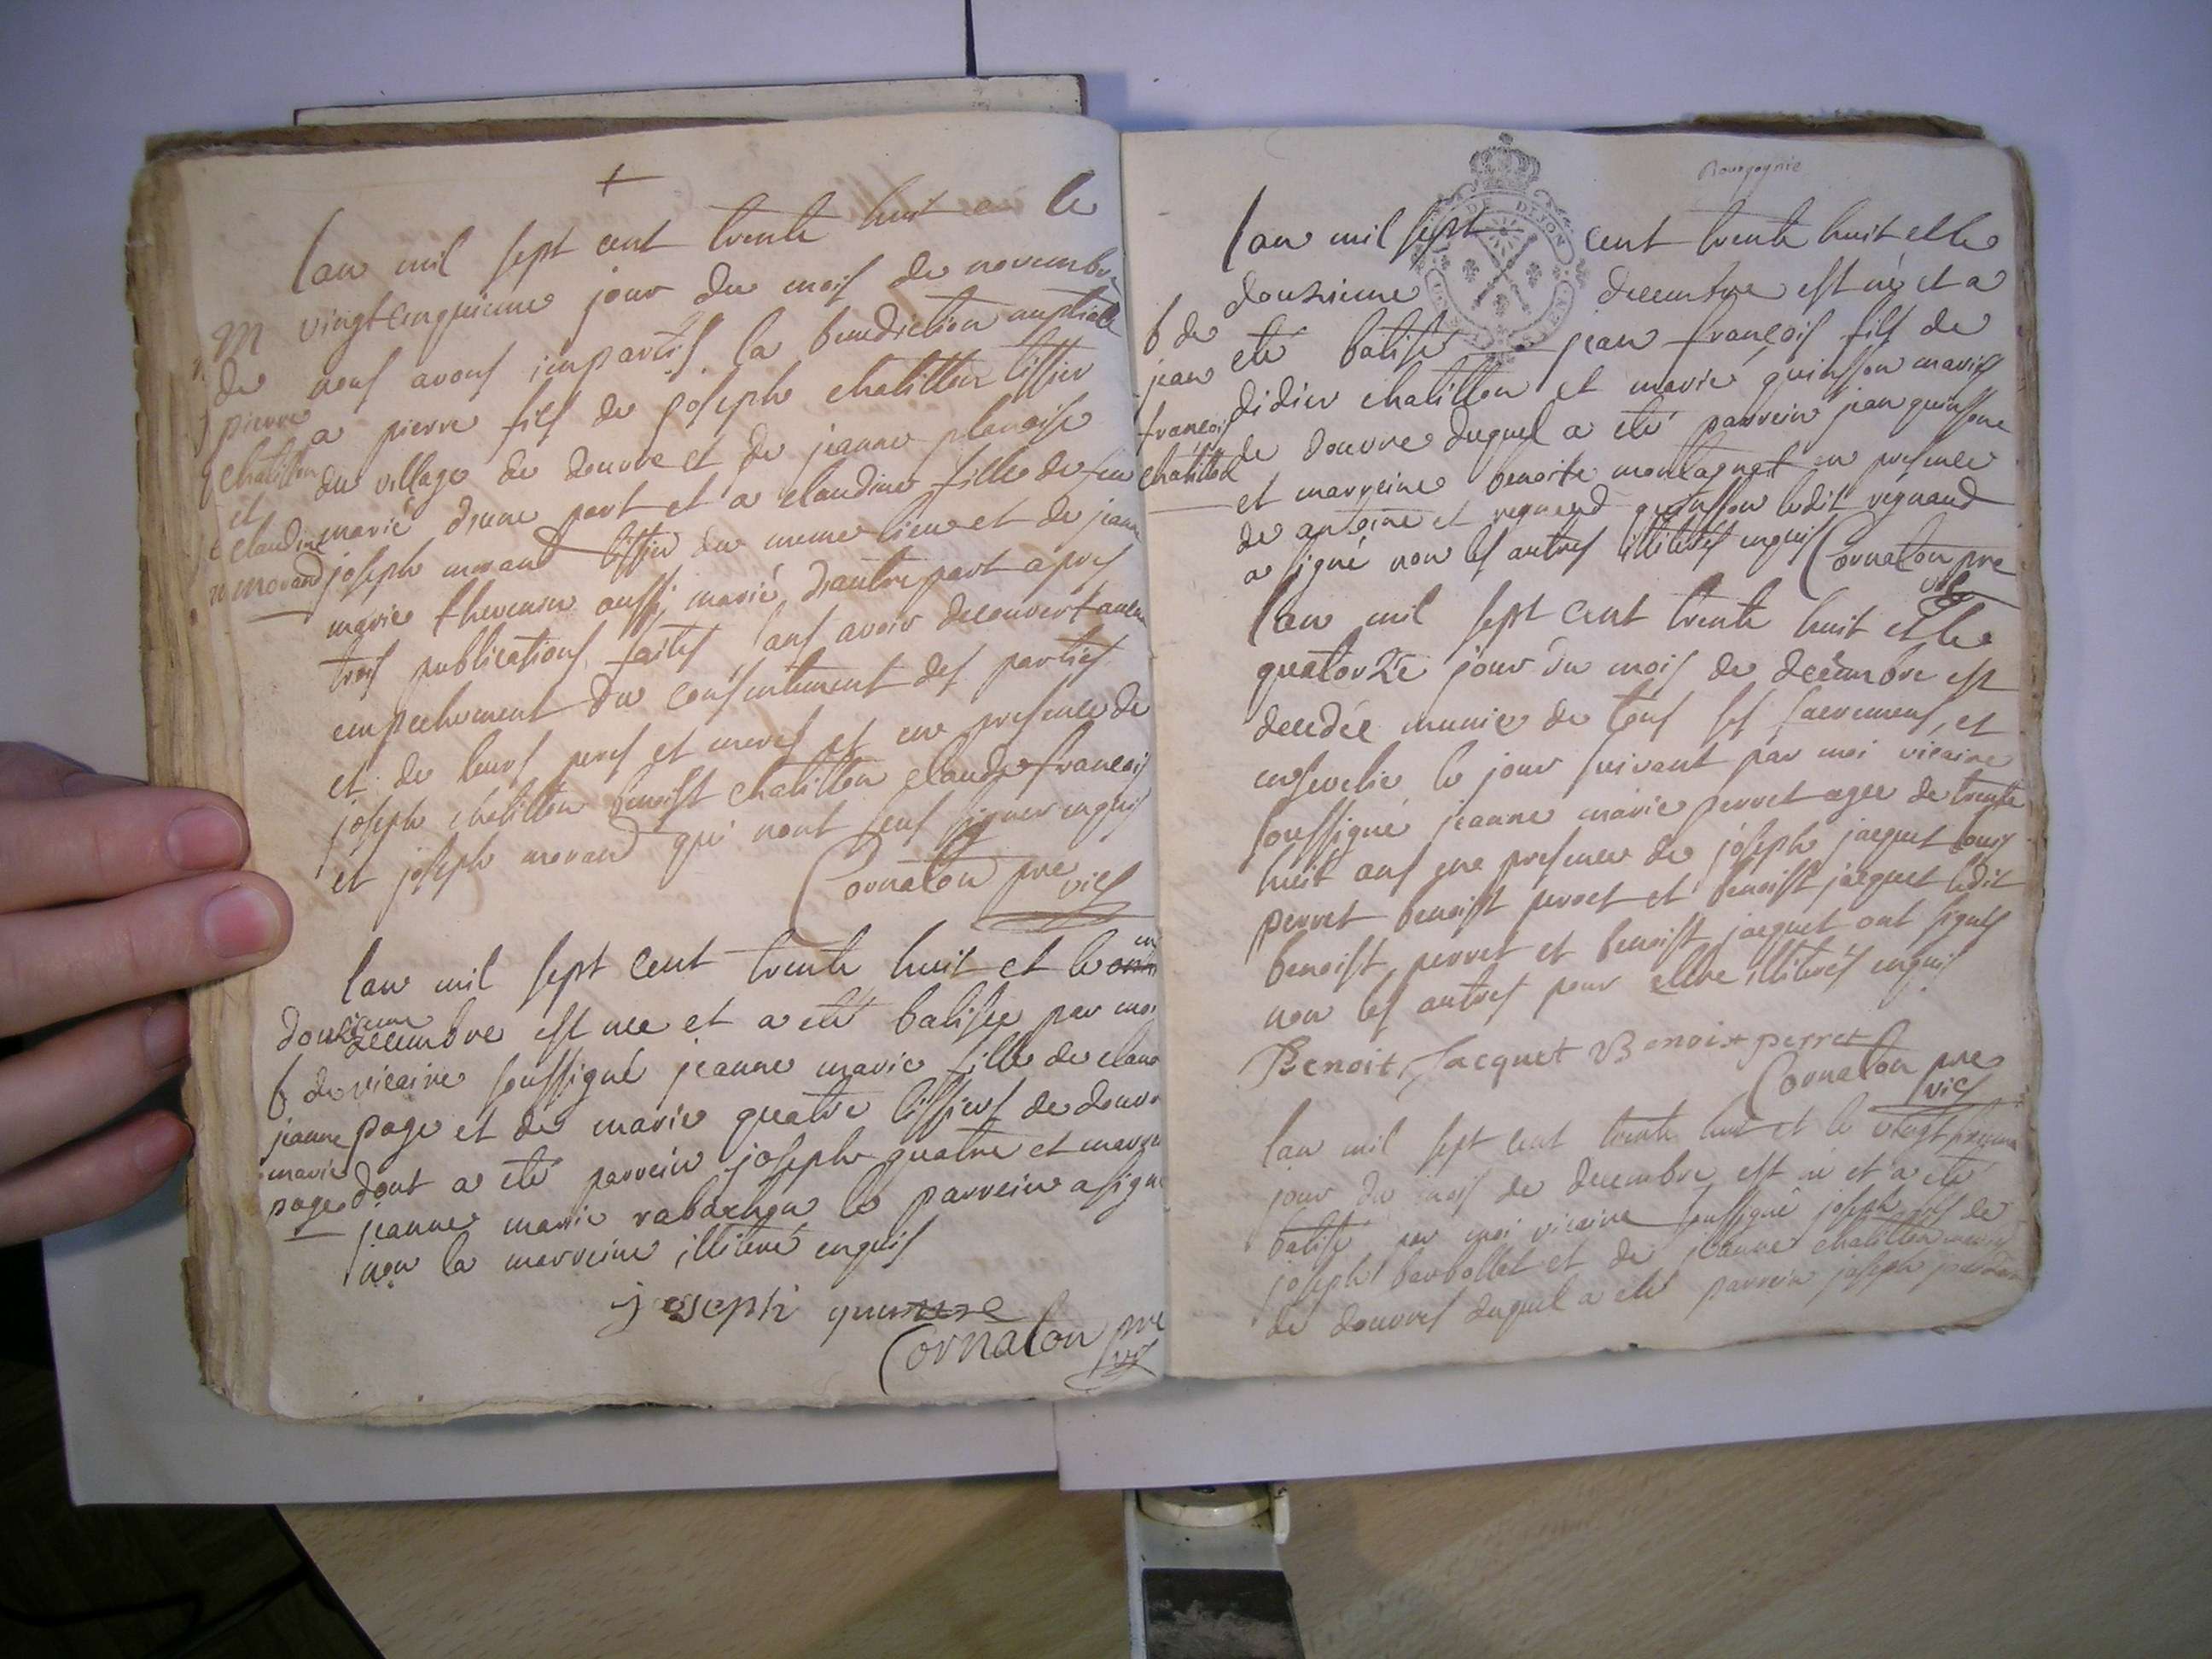 lan mil sept cent trente huit et le
vingt cinquieme jour du mois de novembre
nous avons impartis la benediction nuptiale
a pierre fils de joseph chatillon tissier
du village de douvre et de jeanne planaise
mariés d'une part et a claudine fille de feu
joseph morand tissier du meme lieu et de jeanne
marie thevenin aussi mariés d'autre part apres
trois publications faites sans avoir decouvert aucun
empechement du consentement des parties
et de leurs peres et meres et en presence de
joseph chatillon benoist chatillon claude françois
et joseph morand qui n'ont seus signer enquis
Cornaton pre vics
M
de
pierre
chatillon
et
claudine
morand
lan mil sept cent trente huit et le
douzieme decembre est nee et a eté batisée par moi
vicaire soussigné jeanne marie fille de claude
page et de marie quatre tissiers de douvre
dont a eté parrein joseph quatre et marreine
jeanne marie rabachon le parrein a signé
non la marreine illiteré enquis
b de
jeanne
marie
page
joseph
Cornaton pre vics
Bourgogne
DE DIJON
lan mil sept cent trente huit et le
douzieme decembre est né et a
eté batisé jean françois fils de
didier chatillon et marie quinsson mariés
de douvre duquel a eté parrein jean quinsson
et marreine benoite montagnet en presence
de antoine et regnaud quinsson ledit regnaud
a signé non les autres illiterés enquis Cornaton pre
vics
b de
jean
françois
chatillon
lan mil sept cent trente huit et le
quatorze jour du mois de decembre est
decedée munie de tous ses sacremens, et
ensevelie le jour suivant par moi vicaire
soussigné jeanne marie perret agee de trente
huit ans en presence de joseph jacquet louis
perret benoist perret et benoist jacquet ledit
benoist perret et benoist jacquet ont signés
non les autres pour estre illiterés enquis
Benoit Jacquet Benoit perret
Cornaton pre
vics
lan mil sept cent trente huit et le vingt
jour du mois de decembre est né et a eté
batisé par moi vicaire soussigné joseph fils de
joseph barbollet et de jeanne chatillon mariés
de douvres duquel a eté parrein joseph